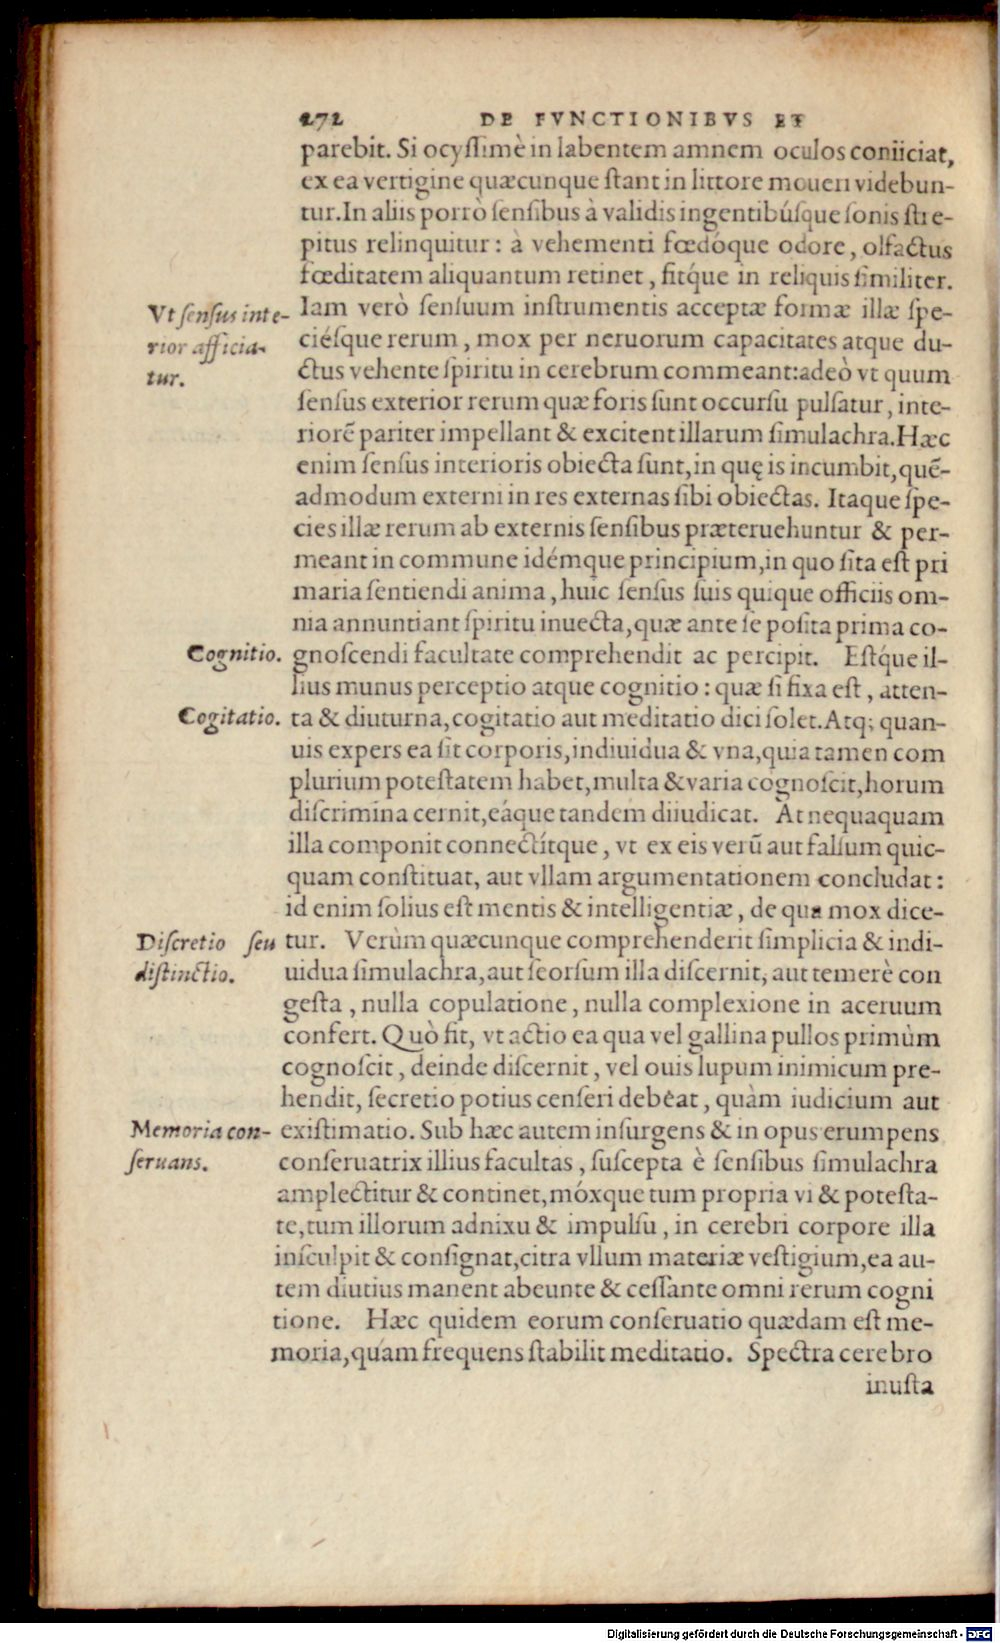 272 DE FVNCTIONIBVS ET
parebit. Si ocyſſimè in labentem amnem oculos coniiciat,
ex ea vertigine quæcunque ſtant in littore moueri videbun-
tur. In aliis porrò ſenſibus à validis ingentibúſque ſonis ſtre-
pitus relinquitur: à vehementi fœdóque odore, olfactus
fœditatem aliquantum retinet, fitq́ue in reliquis ſimiliter.
Vt ſenſus inte-
rior afficia-
tur.
Iam verò ſenſuum inſtrumentis acceptæ formæ illæ ſpe-
ciéſque rerum, mox per neruorum capacitates atque du-
ctus vehente ſpiritu in cerebrum commeant: adeò vt quum
ſenſus exterior rerum quæ foris ſunt occurſu pulſatur, inte-
riorẽ pariter impellant & excitent illarum ſimulachra. Hæc
enim ſenſus interioris obiecta ſunt, in quę is incumbit, quẽ-
admodum externi in res externas ſibi obiectas. Itaque ſpe-
cies illæ rerum ab externis ſenſibus præteruehuntur & per-
meant in commune idémque principium, in quo ſita eſt pri
maria ſentiendi anima, huic ſenſus ſuis quique officiis om-
nia annuntiant ſpiritu inuecta, quæ ante ſe poſita prima co-
Cognitio.
gnoſcendi facultate comprehendit ac percipit. Eſtq́ue il-
lius munus perceptio atque cognitio: quæ ſi fixa eſt, atten-
Cogitatio.
ta & diuturna, cogitatio aut meditatio dici ſolet. Atq; quan-
uis expers ea ſit corporis, indiuidua & vna, quia tamen com
plurium poteſtatem habet, multa & varia cognoſcit, horum
diſcrimina cernit, eáque tandem diiudicat. At nequaquam
illa componit connectítque, vt ex eis verũ aut falſum quic-
quam conſtituat, aut vllam argumentationem concludat:
id enim ſolius eſt mentis & intelligentiæ, de qua mox dice-
Diſcretio ſeu
diſtinctio.
tur. Verùm quæcunque comprehenderit ſimplicia & indi-
uidua ſimulachra, aut ſeorſum illa diſcernit, aut temerè con
geſta, nulla copulatione, nulla complexione in aceruum
confert. Quò fit, vt actio ea qua vel gallina pullos primùm
cognoſcit, deinde diſcernit, vel ouis lupum inimicum pre-
hendit, ſecretio potius cenſeri debeat, quàm iudicium aut
Memoria con-
ſeruans.
exiſtimatio. Sub hæc autem inſurgens & in opus erumpens
conſeruatrix illius facultas, ſuſcepta è ſenſibus ſimulachra
amplectitur & continet, móxque tum propria vi & poteſta-
te, tum illorum adnixu & impulſu, in cerebri corpore illa
inſculpit & conſignat, citra vllum materiæ veſtigium, ea au-
tem diutius manent abeunte & ceſſante omni rerum cogni
tione. Hæc quidem eorum conſeruatio quædam eſt me-
moria, quám frequens ſtabilit meditatio. Spectra cerebro
inuſta
Digitalisierung gefördert durch die Deutsche Forschungsgemeinschaft - DFG